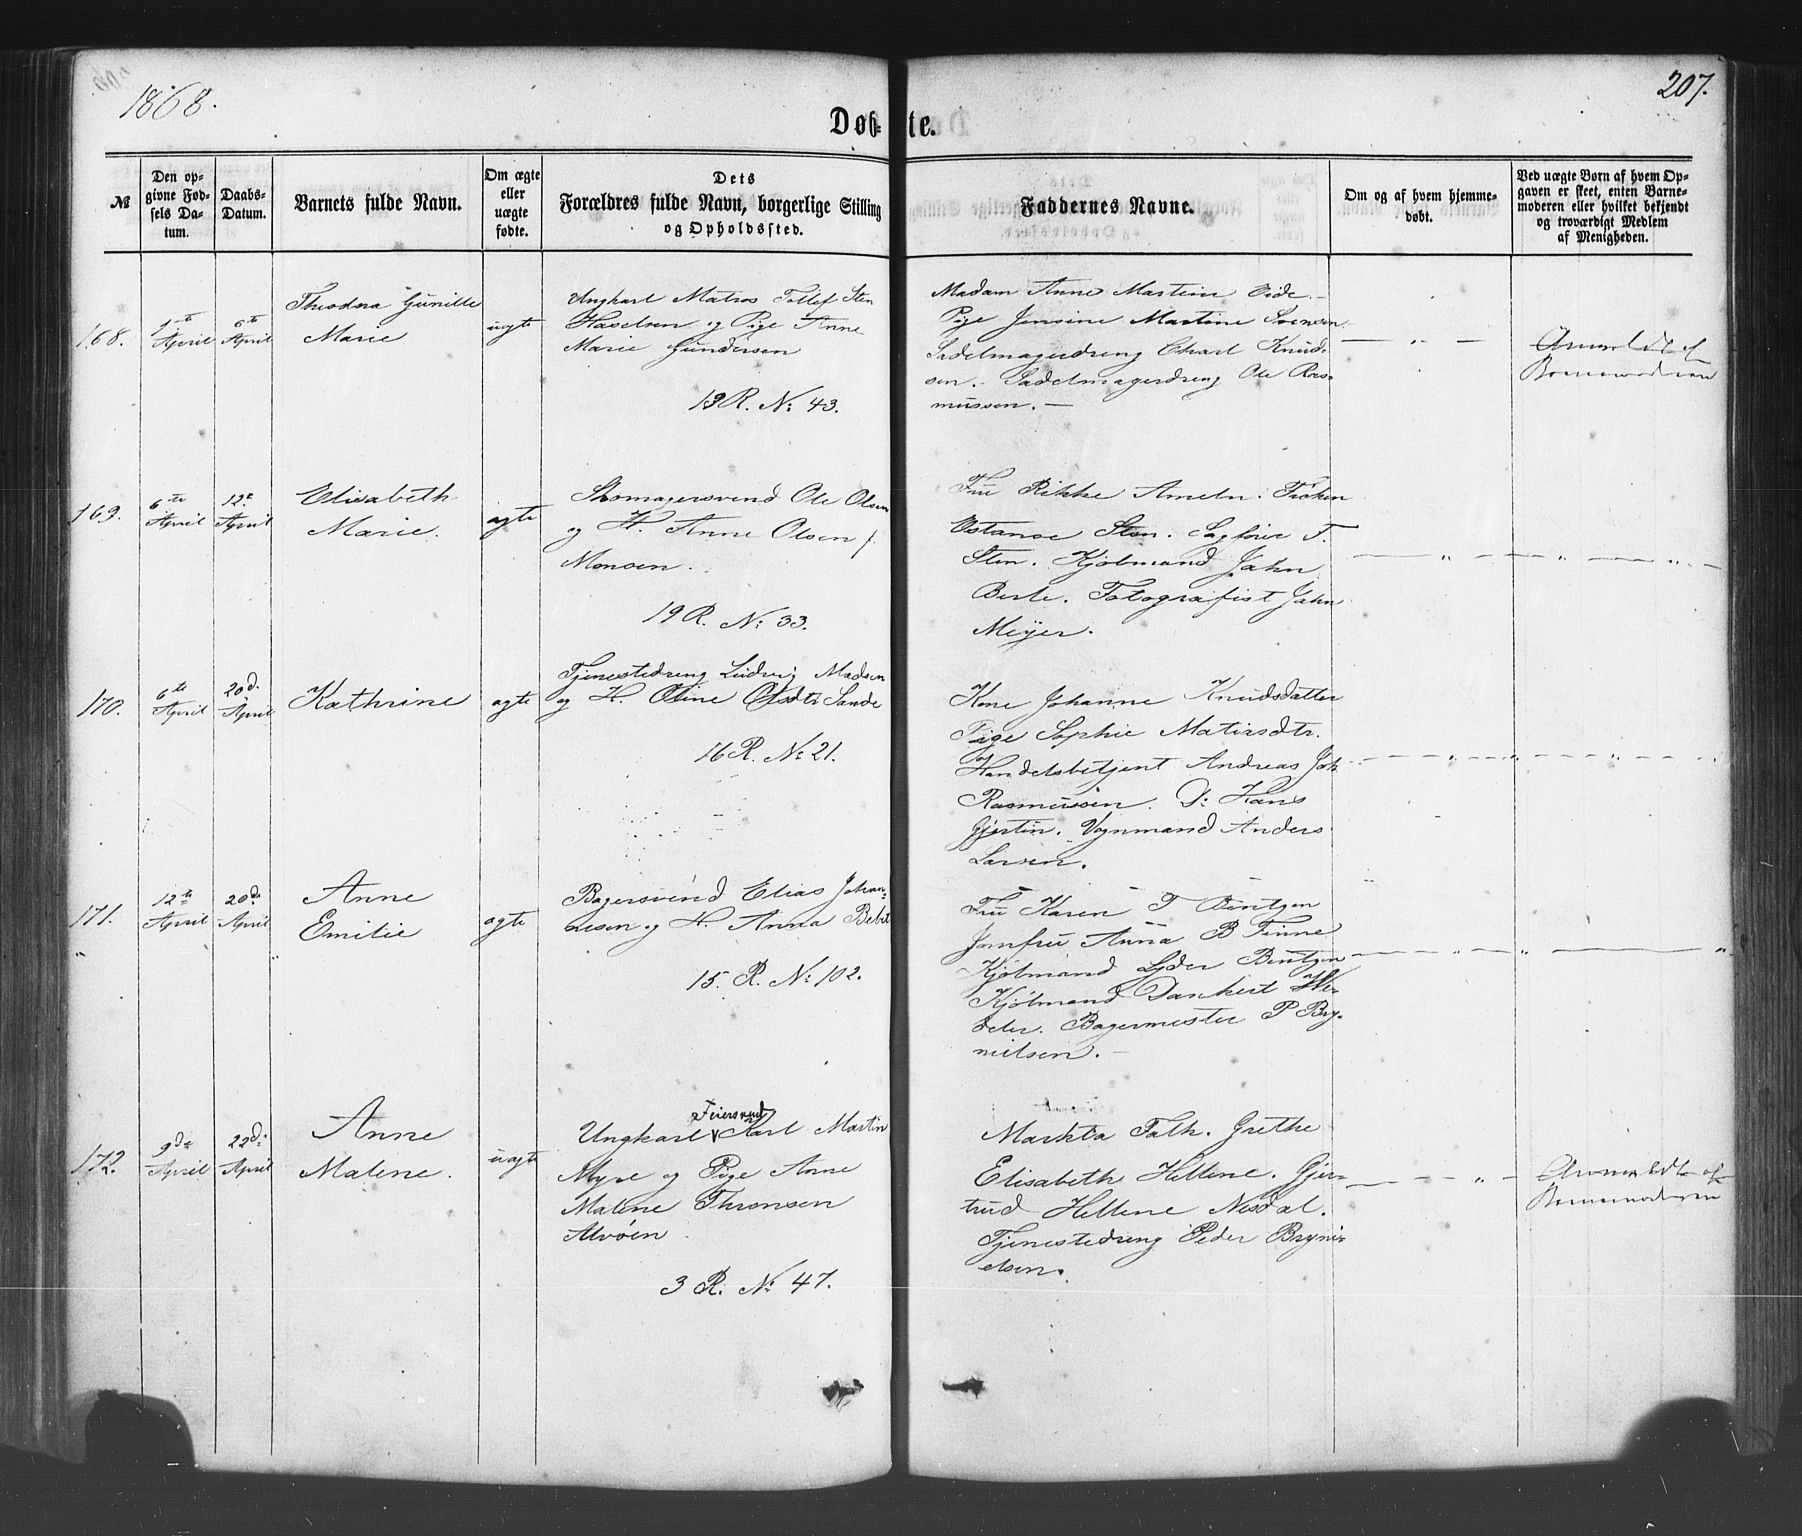 1868.
207.
Døb- te.
№
Den op-
givne Fød-
sels Da-
tum.
Daabs-
Datum.
Barnets fulde Navn.
Om ægte
eller
uægte
fødte.
Dets
Forældres fulde Navn, borgerlige Stilling
og Opholdssted.
Faddernes Navne.
Om og af hvem hjemme-
døbt.
Ved uægte Børn af hvem Op-
gaven er skeet, enten Barne-
moderen eller hvilket bekjendt
og troværdigt Medlem
af Menigheden.
168.
April
6te
April
Theodora Gunille
Marie
uegte
Ungkarl Matros Tollef Sten
Haselsen og Pige Anne
Marie Gundersen
13 R. N: 43.
Madam Anne Martine Eide. —
Pige Jensine Martine Svensen
Sadelmagerdreng Charl Knud-
sen. Sadelmagerdreng Ole Ras-
mussen. —
— " —
Anmeldt af
Barnemoderen
169.
6te
April
12te
April
Elisabeth
Marie.
egte
Skomagersvend Ole Olsen
og H. Anne Olsen f.
Monsen.
19 R. N: 33.
Fru Rikke Ameln. Frøken
Sten. Sagfører F.
Sten. Kjølmand Jahn
Berle. Fotografist Jahn
Meijer.
— " — " — " —
170.
6te
April
20de
April
Kathrine
egte
Tjenestedreng Ludvig Madsen
og H. Oline Olsdtr Sande
16 R. N: 21.
Kone Johanne Knudsdatter
Pige Sophie Matisdtr.
Handelsbetjent Andreas Joh
Rasmussen. D: Hans
Gjertin. Vognmand Anders
Larsen.
— " — " —
171.
"
12te
April
20de
April
Anne
Emilie
egte
Bagersvend Elias Johan-
nesen og H. Anna Bebet
15. R. N: 102.
Fru Karen T Bintzen
Jomfru Anna B Finne
Kjølmand Lyder Bintzen
Kjølmand Danckert
Bagermester P Bry-
nielsen. —
— " — " — "
172.
9de
April
22de
April
Anne
Malene.
uegte
Feiersvend
Ungkarl Karl Martin
Myre og Pige Anne
Malene Thronsen
Alvøen
3 R. N: 47.
Martha Falk. Grethe
Elisabeth Hellene. Gjer-
trud Hellene Nesdal.
Tjenestedreng Peder Bryni-
elsen.
— " —
Anmeldt af
Barnemoderen